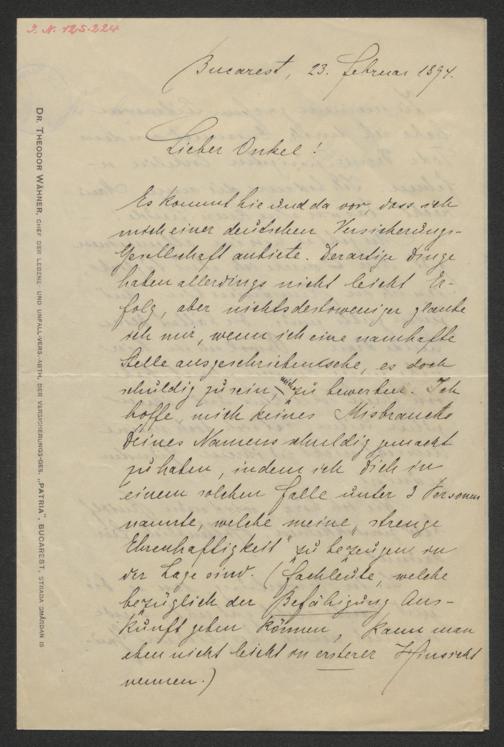 J. N. 125.224
Bucarest, 23. Februar 1894.
Lieber Onkel!
Es kommt hie und da vor, dass ich
mich einer deutschen Versicherungs-
Gesellschaft anbiete. Derartige Dinge
haben allerdings nicht leicht Er-
folg, aber nichtsdestoweniger glaube
ich mir, wenn ich eine namhafte
Stelle ausgeschrieben sehe, es doch
schuldig zu sein, mich zu bewerben. Ich
hoffe, mich keines Misbrauchs
Deines Namens schuldig gemacht
zu haben, indem ich Dich in
einem solchen Falle unter 3 Personen
nannte, welche meine "strenge
Ehrenhaftigkeit" zu bezeugen in
der Lage sind. (Fachleute, welche
bezüglich der Befähigung Aus-
kunft geben können, kann man
eben nicht leicht in ersterer Hinsicht
nennen.)
DR. THEODOR WÄHNER, CHEF DER LEBENS- UND UNFALL-VERS.-ABTH. DER VERSICHERUNGS-GES. „PATRIA", BUCAREST, STRADA SMÂRDAN 15